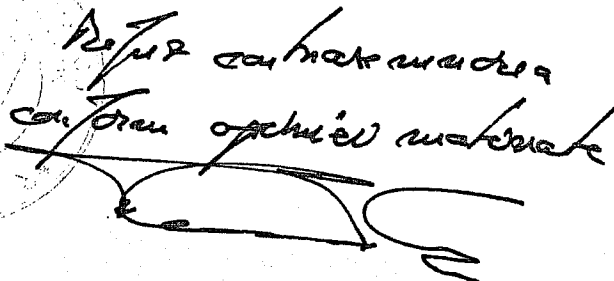 Refuz contrasemnarea
conform opiniei motivate